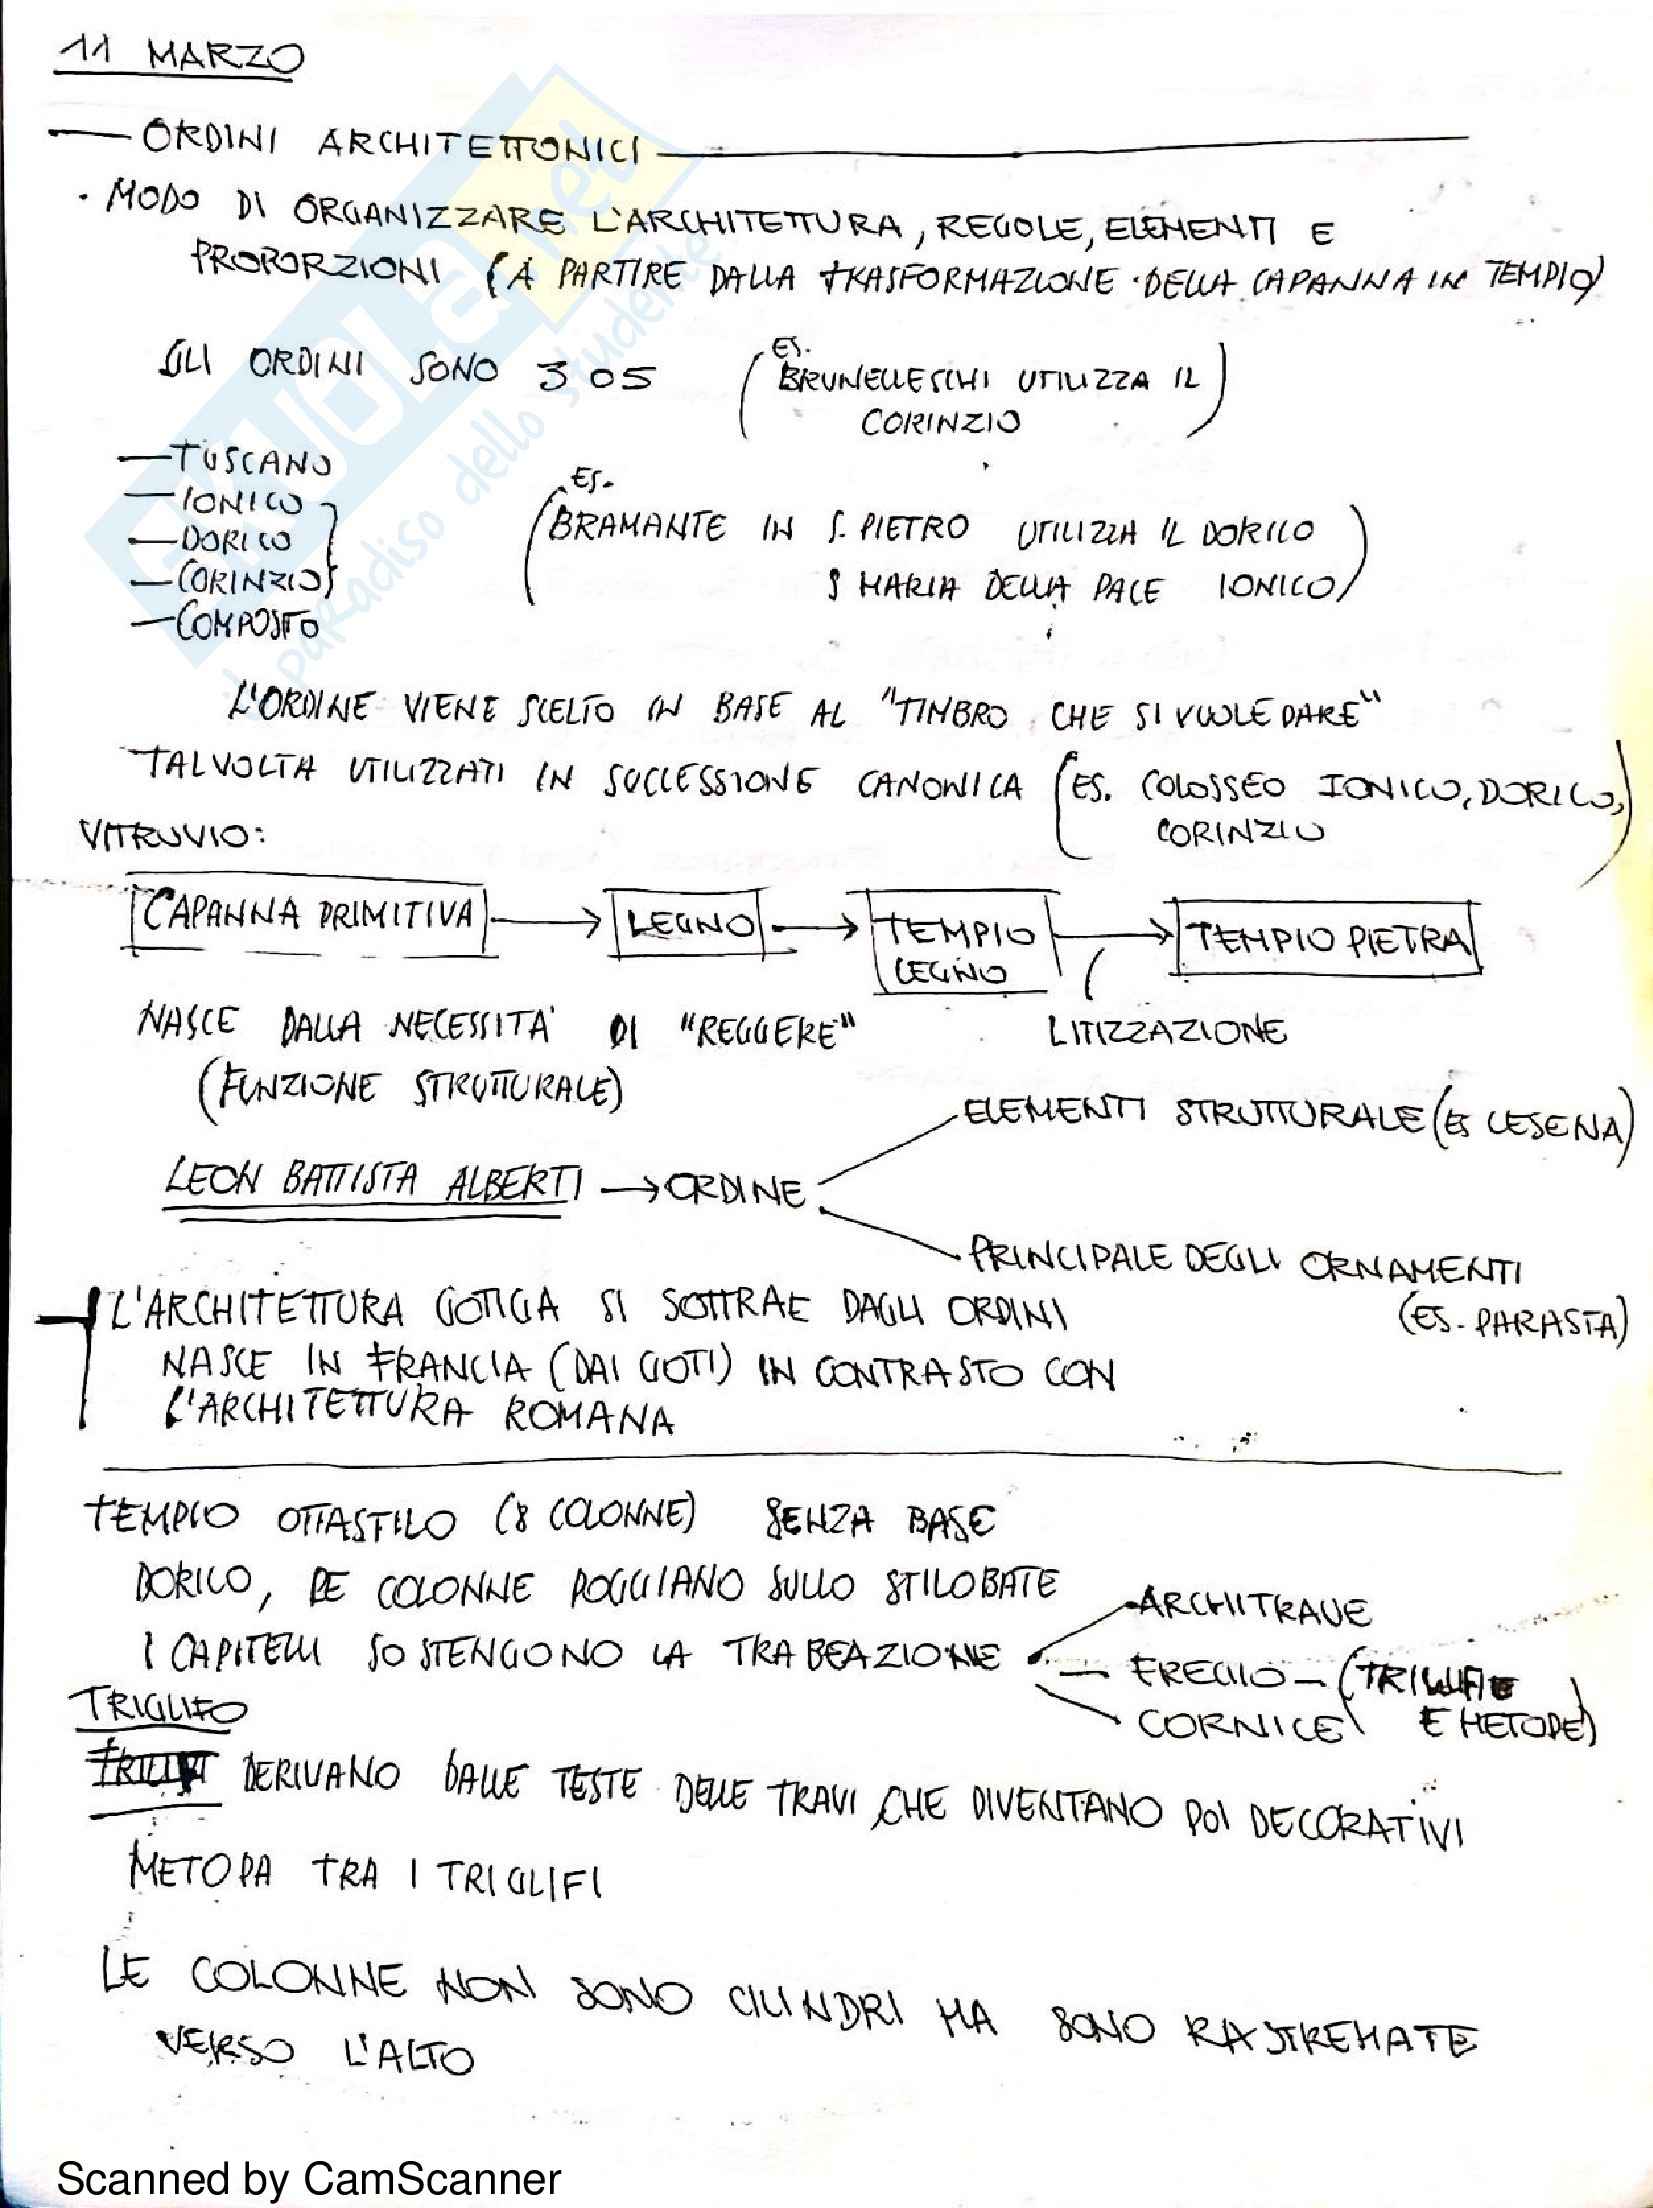 11 MARZO
ORDINI ARCHITETTONICI
· MODO DI ORGANIZZARE L'ARCHITETTURA, REGOLE, ELEMENTI E
PROPORZIONI (A PARTIRE DALLA TRASFORMAZIONE DELLA CAPANNA IN TEMPIO)
GLI ORDINI SONO 3 O 5
(ES. BRUNELLESCHI UTILIZZA IL
CORINZIO)
— TUSCANO
— IONICO
— DORICO
— CORINZIO
— COMPOSTO
(ES. BRAMANTE IN S. PIETRO UTILIZZA IL DORICO
S MARIA DELLA PACE IONICO)
L'ORDINE VIENE SCELTO IN BASE AL "TIMBRO CHE SI VUOLE DARE"
TALVOLTA UTILIZZATI IN SUCCESSIONE CANONICA (ES. COLOSSEO IONICO, DORICO,
CORINZIO)
VITRUVIO:
CAPANNA PRIMITIVA → LEGNO → TEMPIO
LEGNO → TEMPIO PIETRA
NASCE DALLA NECESSITA' DI "REGGERE"
LITIZZAZIONE
(FUNZIONE STRUTTURALE)
ELEMENTI STRUTTURALE (ES LESENA)
LEON BATTISTA ALBERTI → ORDINE
PRINCIPALE DEGLI ORNAMENTI
(ES. PARASTA)
L'ARCHITETTURA GOTICA SI SOTTRAE DAGLI ORDINI
NASCE IN FRANCIA (DAI GOTI) IN CONTRASTO CON
L'ARCHITETTURA ROMANA
TEMPIO OTTASTILO (8 COLONNE) SENZA BASE
DORICO, LE COLONNE POGGIANO SULLO STILOBATE
I CAPITELLI SOSTENGONO LA TRABEAZIONE
ARCHITRAVE
— FREGIO — (TRIGLIFI E
E METOPE)
CORNICE
TRIGLIFO
DERIVANO DALLE TESTE DELLE TRAVI, CHE DIVENTANO POI DECORATIVI
METOPA TRA I TRIGLIFI
LE COLONNE NON SONO CILINDRI MA SONO RASTREMATE
VERSO L'ALTO
SKUOLA.net
il paradiso dello studente
Scanned by CamScanner